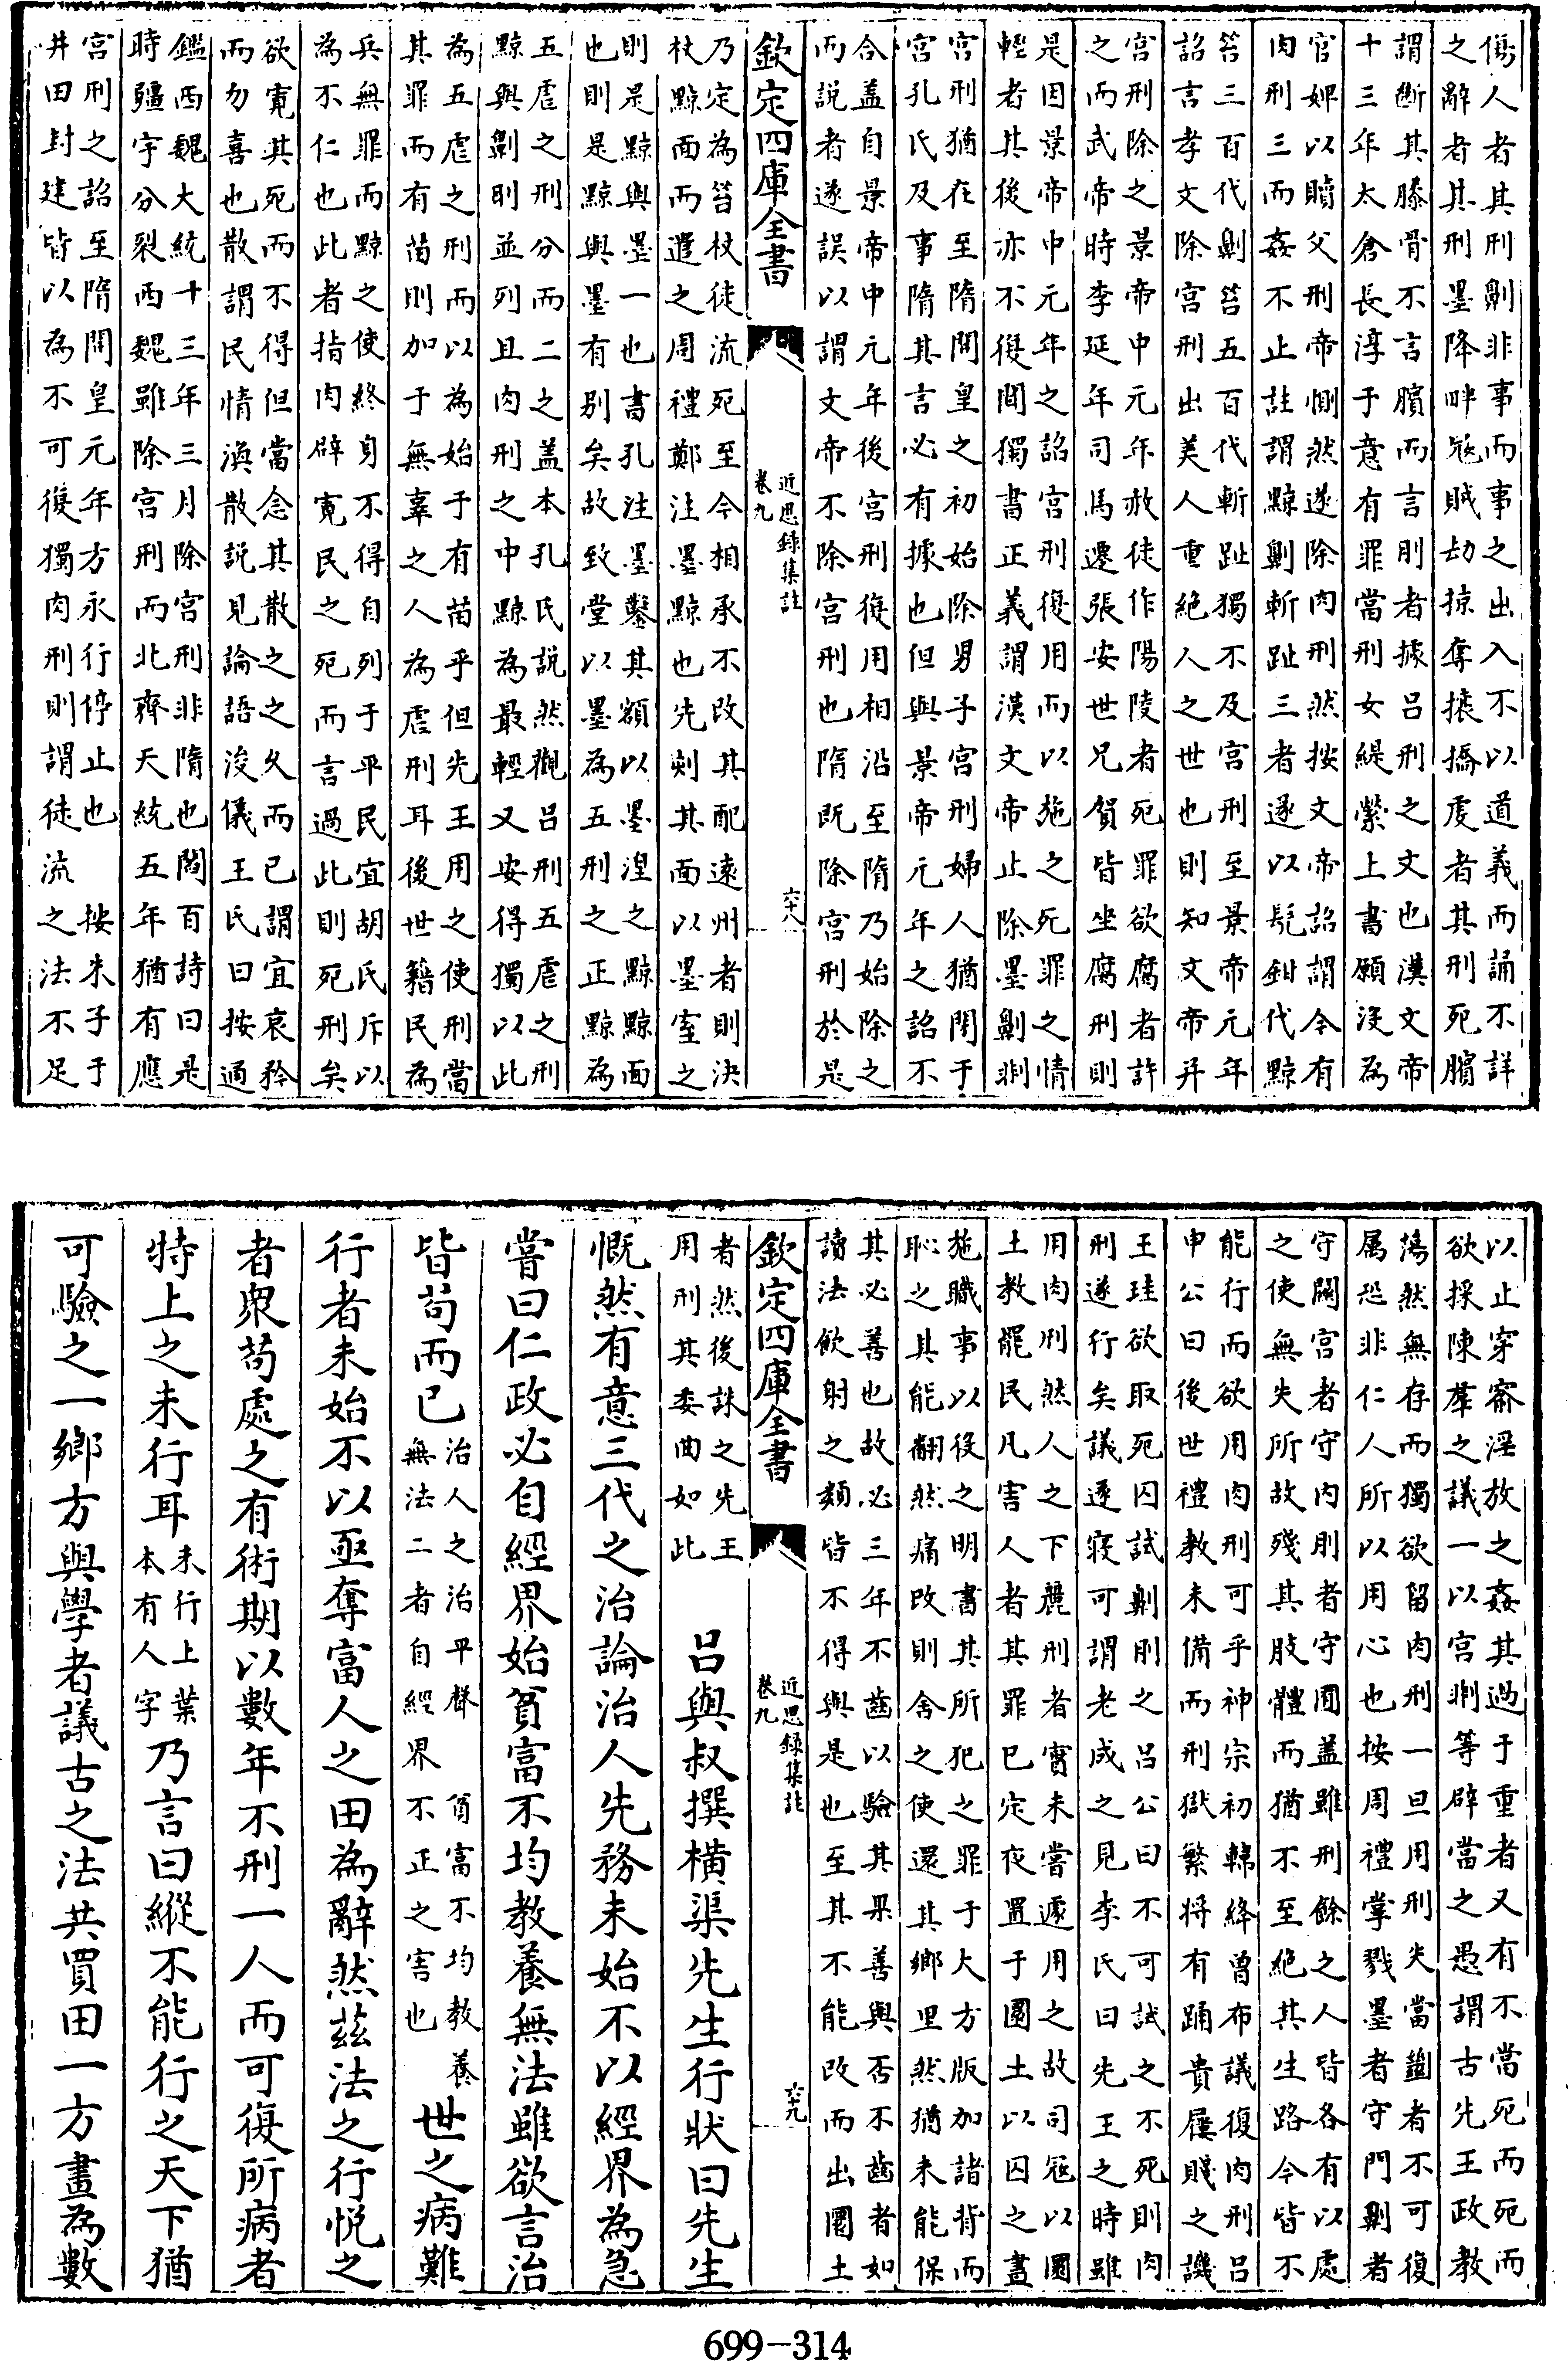 傷人者其刑劓非事而事之出入不以道義而誦不詳
之辭者其刑墨降畔宼賊刦掠奪攘撟䖍者其刑死臏
謂斷其膝骨不言臏而言刖者據呂刑之文也漢文帝
十三年太倉長淳于意有罪當刑女緹縈上書願沒為
官婢以贖父刑帝惻然遂除肉刑然按文帝詔謂今有
肉刑三而姦不止註謂黥劓斬趾三者遂以髡鉗代黥
笞三百代劓笞五百代斬趾獨不及宮刑至景帝元年
詔言孝文除宮刑出美人重絶人之世也則知文帝并
宮刑除之景帝中元年赦徒作陽陵者死罪欲腐者許
之而武帝時李延年司馬遷張安世兄賀皆坐腐刑則
是因景帝中元年之詔宮刑復用而以施之死罪之情
輕者其後亦不復間獨書正義謂漢文帝止除墨劓剕
宮刑猶在至隋開皇之初始除男子宮刑婦人猶閉于
宮孔氏及事隋其言必有據也但與景帝元年之詔不
合盖自景帝中元年後宮刑復用相沿至隋乃始除之
而説者遂誤以謂文帝不除宮刑也隋既除宮刑於是
欽定四庫全書
近思録集註
卷九
六十八
乃定為笞杖徒流死至今相承不改其配遠州者則決
杖黥面而遣之周禮鄭注墨黥也先刻其面以墨窒之
則是黥與墨一也書孔注墨鑿其額以墨湼之黥黥面
也則是黥與墨有别矣故致堂以墨為五刑之正黥為
五虐之刑分而二之盖本孔氏説然觀呂刑五虐之刑
黥與劓刖並列且肉刑之中黥為最輕又安得獨以此
為五虐之刑而以為始于有苗乎但先王用之使刑當
其罪而有苗則加于無辜之人為虐刑耳後世籍民為
兵無罪而黥之使終身不得自列于平民宜胡氏斥以
為不仁也此者指肉辟寛民之死而言過此則死刑矣
欲寛其死而不得但當念其散之之久而已謂宜哀矜
而勿喜也散謂民情渙散説見論語浚儀王氏曰按通
鑑西魏大統十三年三月除宮刑非隋也閻百詩曰是
時疆宇分裂西魏雖除宮刑而北齊天統五年猶有應
宮刑之詔至隋開皇元年方永行停止也 按朱子于
井田封建皆以為不可復獨肉刑則謂徒流之法不足
以止穿窬淫放之姦其過于重者又有不當死而死而
欲採陳羣之議一以宮剕等辟當之愚謂古先王政教
蕩然無存而獨欲留肉刑一旦用刑失當齟者不可復
属恐非仁人所以用心也按周禮掌戮墨者守門劓者
守關宮者守内刖者守囿盖雖刑餘之人皆各有以處
之使無失所故殘其肢體而猶不至絶其生路今皆不
能行而欲用肉刑可乎神宗初韓絳曾布議復肉刑呂
申公曰後世禮教未備而刑獄繁将有踊貴屨賤之譏
王珪欲取死囚試劓刖之呂公曰不可試之不死則肉
刑遂行矣議遂寢可謂老成之見李氏曰先王之時雖
用肉刑然人之下麗刑者實未嘗遽用之故司宼以圜
土教罷民凡害人者其罪已定夜置于圜土以囚之晝
施職事以役之明書其所犯之罪于大方版加諸背而
恥之其能翻然痛改則舍之使還其鄉里然猶未能保
其必善也故必三年不齒以驗其果善與否不齒者如
讀法飲射之類皆不得與是也至其不能改而出圜土
欽定四庫全書
近思録集註
卷九
六十九
者然後誅之先王
用刑其委曲如此
呂與叔撰横渠先生行狀曰先生
慨然有意三代之治論治人先務未始不以經界為急
嘗曰仁政必自經界始貧富不均教養無法雖欲言治
皆苟而已
治人之治平聲 貧富不均教養
無法二者自經界不正之害也
世之病難
行者未始不以亟奪富人之田為辭然茲法之行悦之
者衆苟處之有術期以數年不刑一人而可復所病者
特上之未行耳
未行上葉
本有人字
乃言曰縱不能行之天下猶
可驗之一鄉方與學者議古之法共買田一方畫為數
699-314